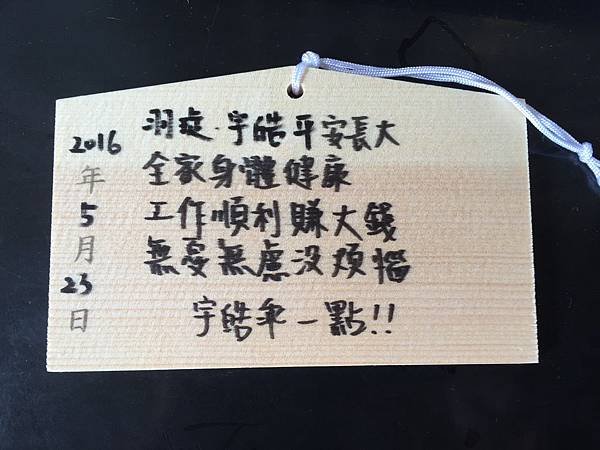 羽庭．宇皓平安長大
全家身體健康
工作順利賺大錢
無憂無慮沒煩惱
宇皓乖一點!!
2016年5月23日